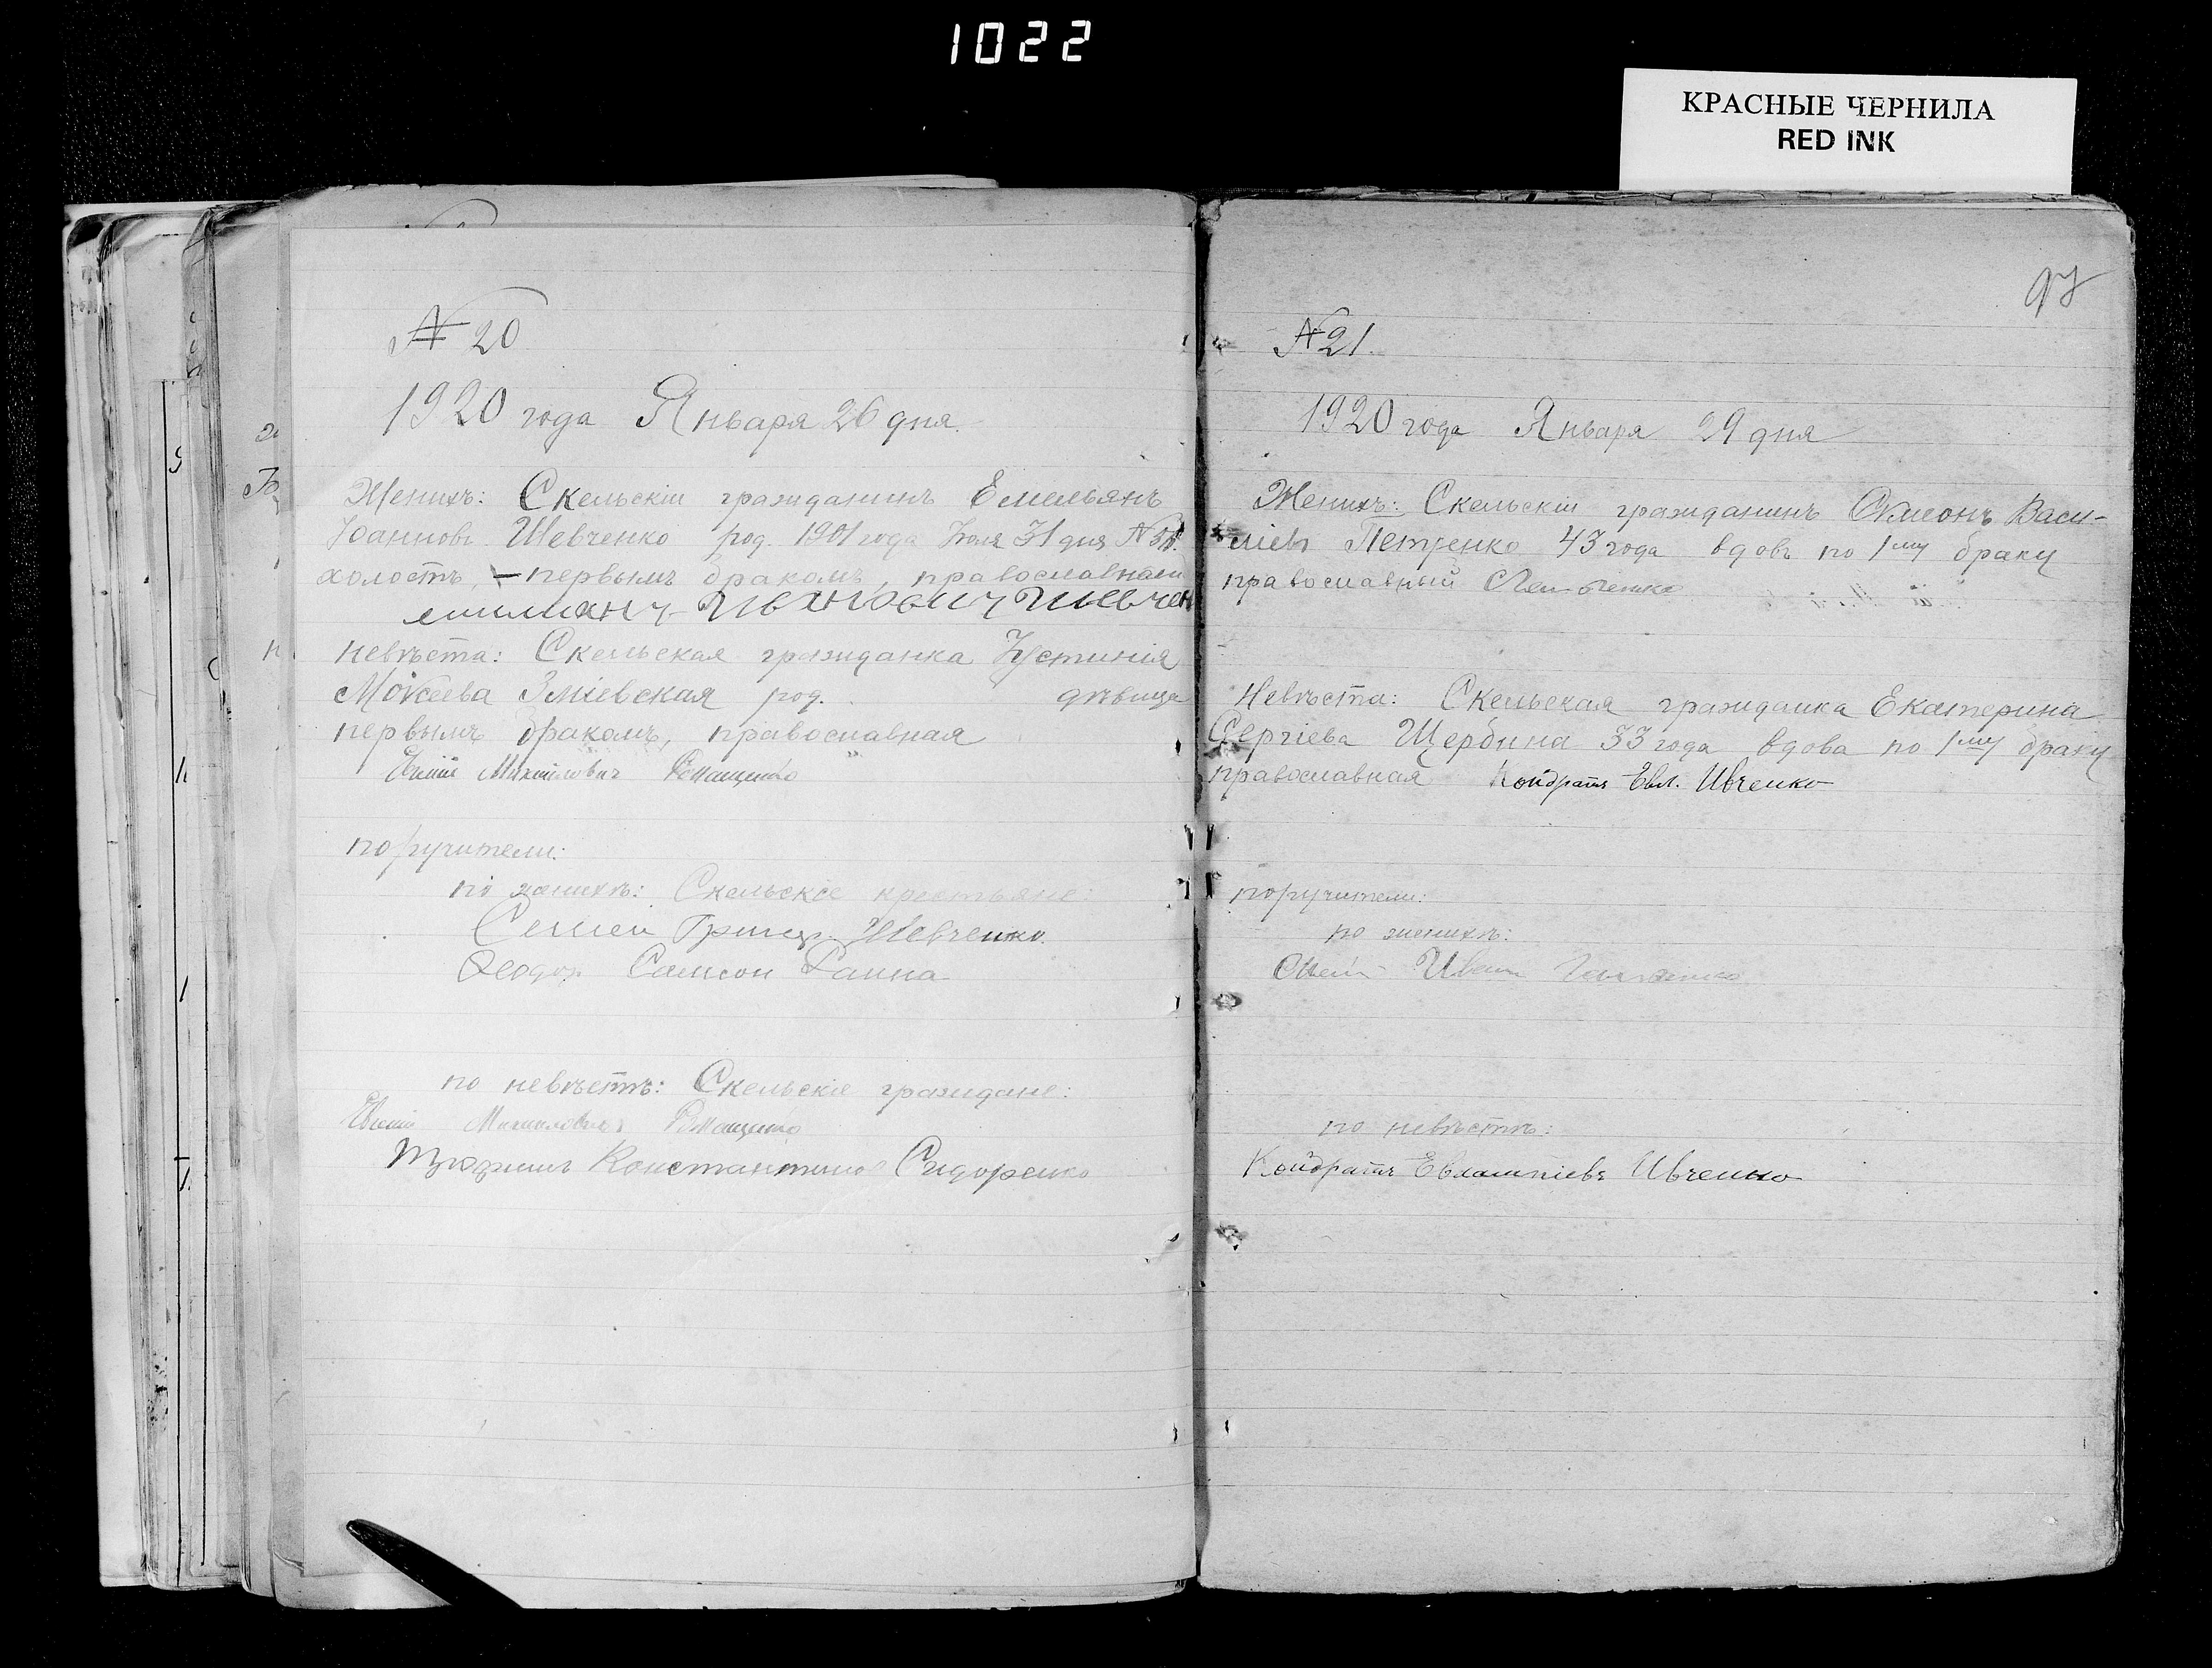 1022
КРАСНЫЕ ЧЕРНИЛА
RED INK
№ 20
1920 года Января 26 дня.
Женихъ: Скельскiи гражданинъ Емельянъ
Iоанновъ Шевченко род. 1901 года Iюля 31 дня
холостъ, – первымъ бракомъ, православный
емилианъ Ивановичъ Шевчен
невѣста: Скельская гражданка Iустинiя
Моѵсеева Змiевская род. дѣвица
первымъ бракомъ, православная
Михаиловичъ Ромащенко
поручители:
по женихѣ: Скельскiе крестьяне:
Семен Григор. Шевченко.
Феодор Самсон Ганна
по невѣстѣ: Скельскiе граждане:
Михаиловичъ Ромащенко
Трофимъ Константинов Сидоренко
97
№ 21.
1920 года Января 29 дня
Женихъ: Скельскiи гражданинъ Сѵмеонъ Васи-
лiевъ Петренко 43 года вдовъ по 1му браку
православный
Невѣста: Скельская гражданка Екатерина
Сергiева Щербина 33 года вдова по 1му браку
православная Кондратъ Евл. Ивченко
поручители:
по женихѣ:
Иван
по невѣстѣ:
Кондратъ Евлампiевъ Ивченко